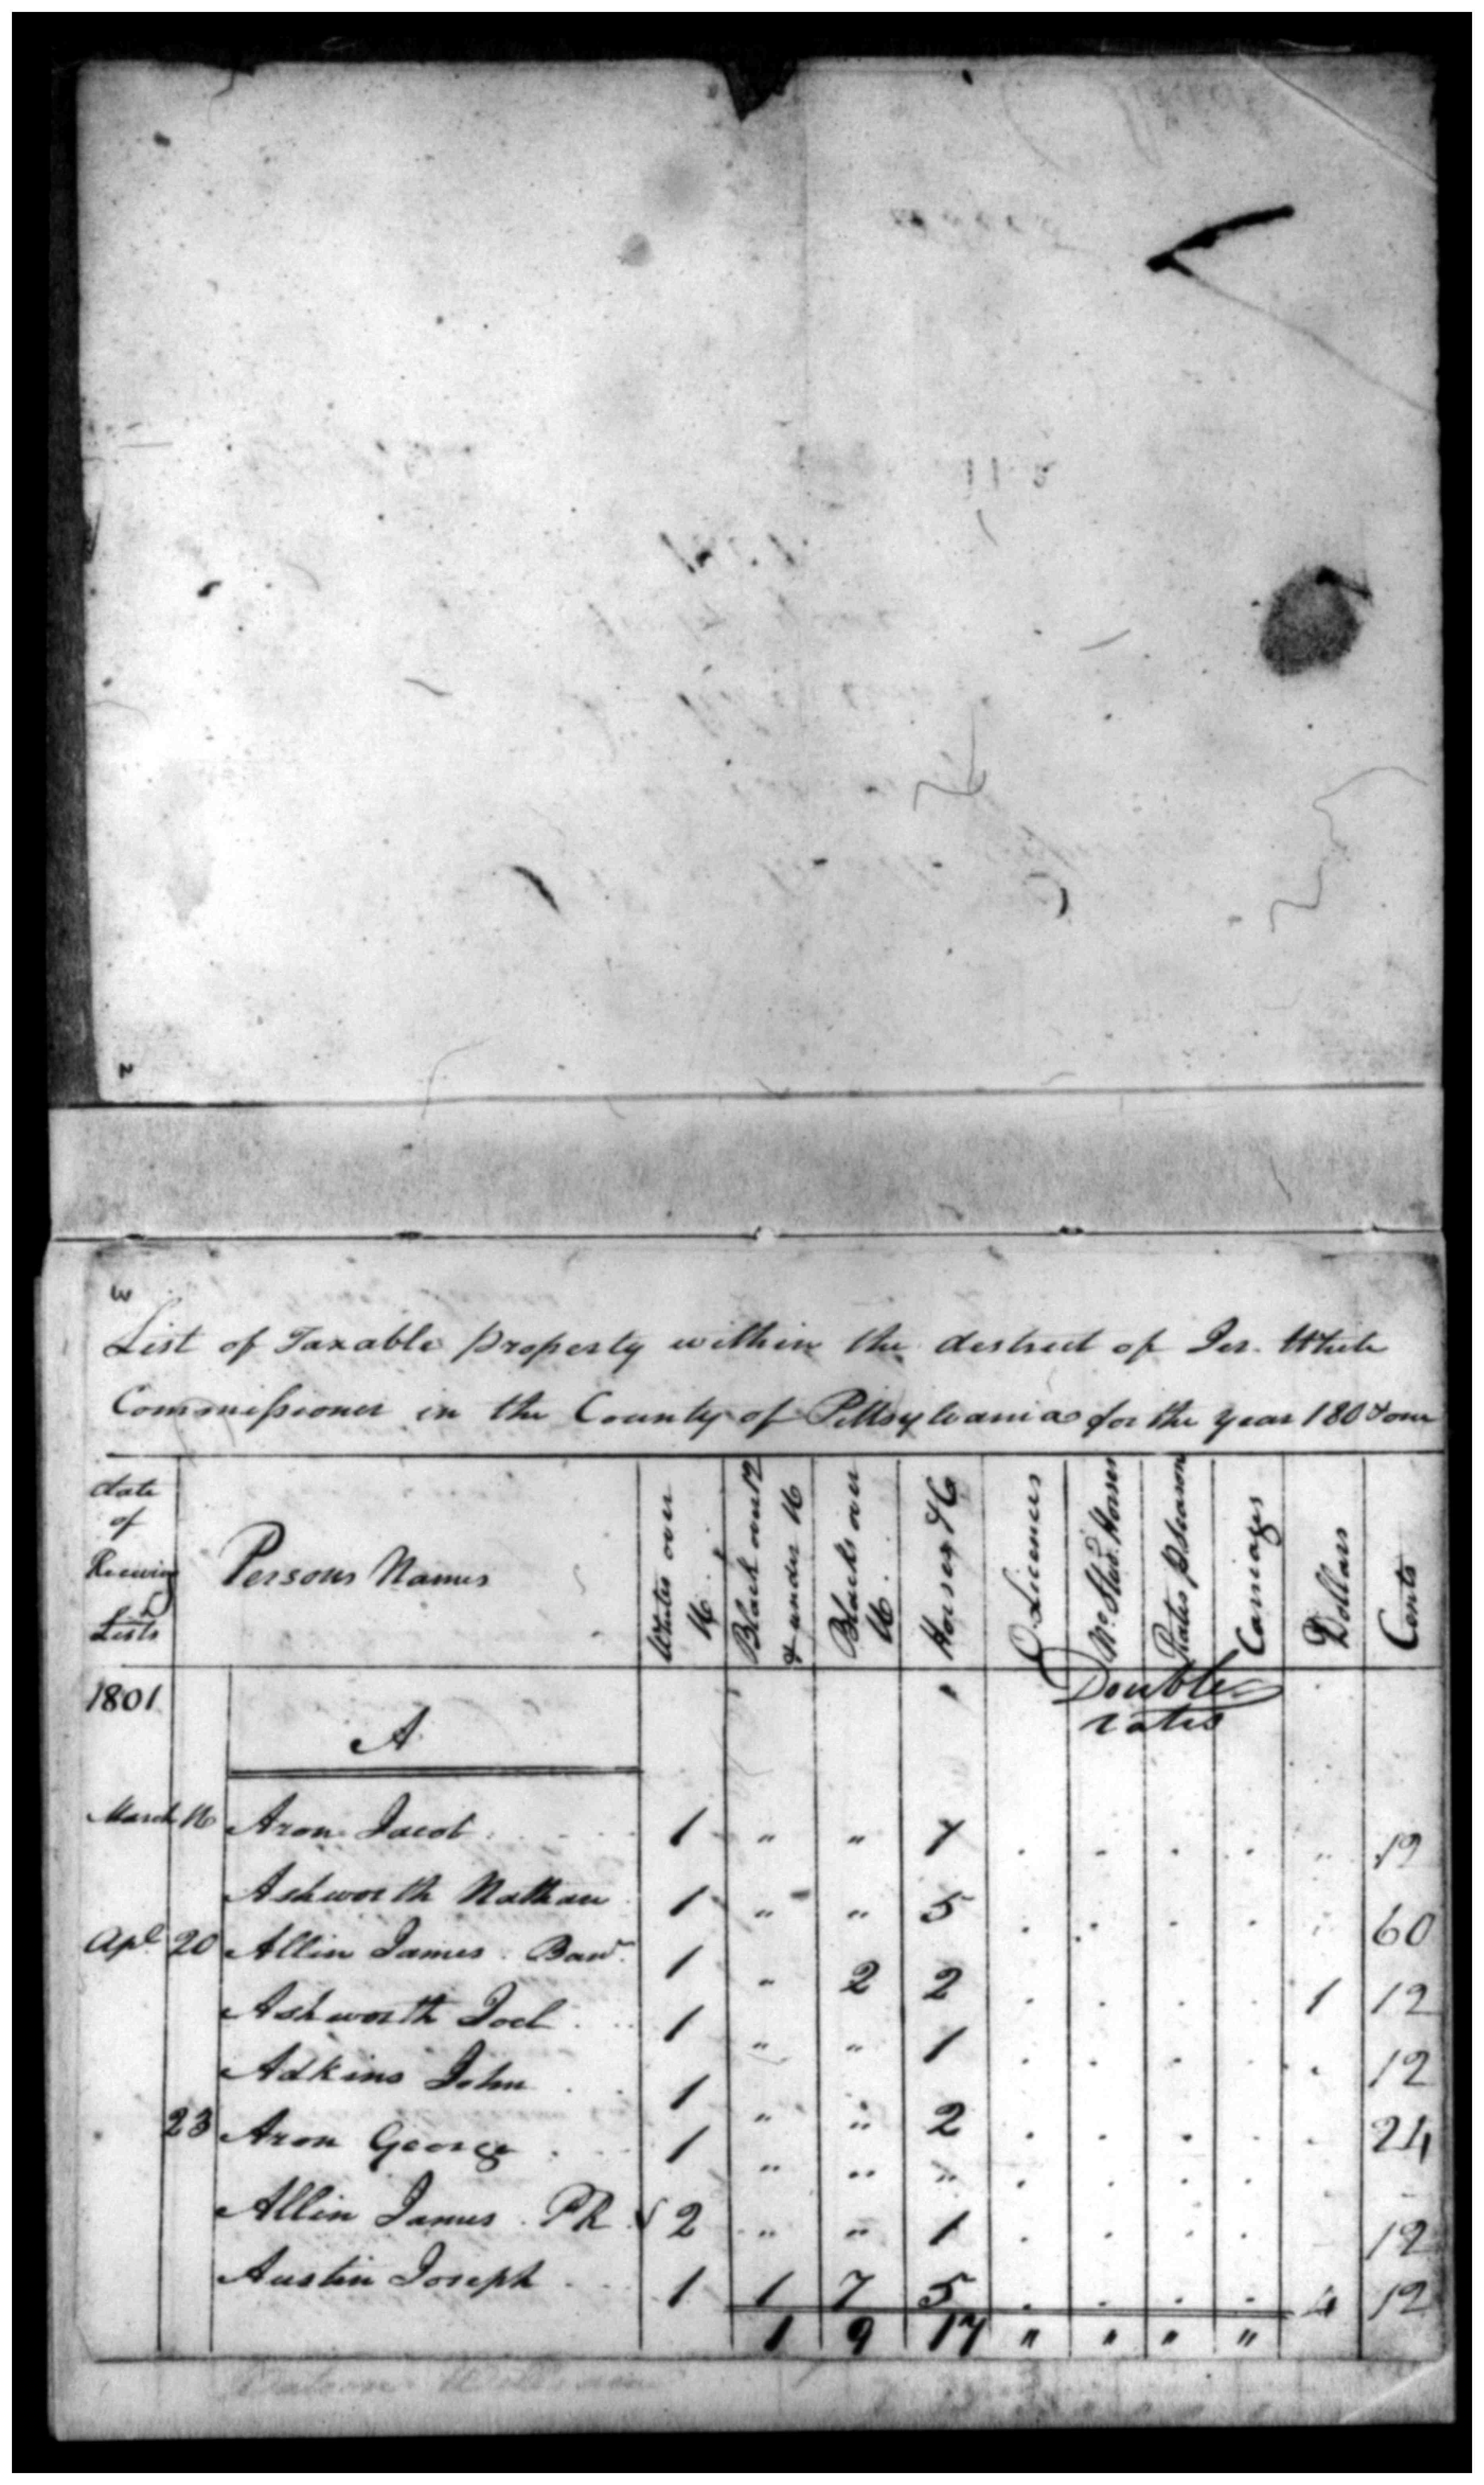 List of Taxable property within the destrect of Jer. White
Commissioner in the County of Pittsylvania for the year 180 one
date of Receiving Lists | Persons Names | Whites over 16 | Black over 12 & under 16 | Blacks over 16 | Horses &C | O Licences | No Stud Horses | Rates p Season | Carriages | Dollars | Cents
1801 Double
A rates
March 16 Aron Jacob 1 " " 1 . . . . " 12
Ashworth Nathan 1 " " 5 . . . . " 60
Apl 20 Allin James 1 " 2 2 . . . . 1 12
Ashworth Joel 1 " " 1 . . . . . 12
Adkins John 1 " " 2 . . . . . 24
23 Aron George 1 " " " . . . . -
Allin James PR 2 " " 1 . . . . 12
Austin Joseph 1 1 7 5 . . . . 4 12
1 9 17 " " " "